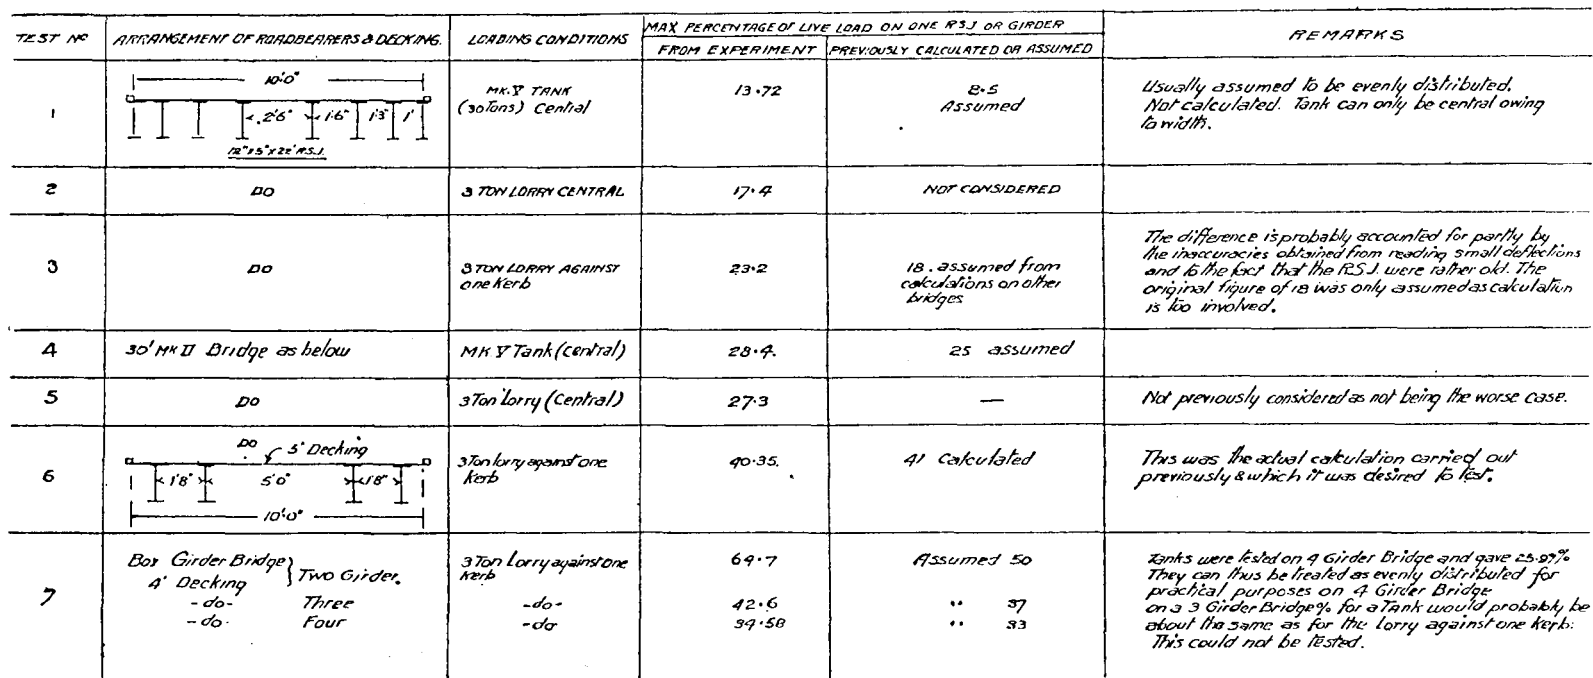 TEST Nº ARRANGEMENT OF ROADBEARERS & DECKING. LOADING CONDITIONS MAX PERCENTAGE OF LIVE LOAD ON ONE R.S.J OR GIRDER REMARKS
FROM EXPERIMENT PREVIOUSLY CALCULATED OR ASSUMED
1
10'0"
2'6" 1'6" 1'3" 1'
12"x5"x22' R.S.J.
MK. V TANK
(30 Tons) Central
13.72
8.5
Assumed
Usually assumed to be evenly distributed.
Not calculated. Tank can only be central owing
to width.
2 DO 3 TON LORRY CENTRAL 17.4 NOT CONSIDERED
3 DO
3 TON LORRY AGAINST
one kerb
23.2
18. assumed from
calculations on other
bridges
The difference is probably accounted for partly by
the inaccuracies obtained from reading small deflections
and to the fact that the R.S.J. were rather old. The
original figure of 18 was only assumed as calculation
is too involved.
4 30' MK II Bridge as below MK V Tank (central) 28.4. 25 assumed
5 DO 3 Ton Lorry (Central) 27.3 — Not previously considered as not being the worse case.
6
DO 5" Decking
1'8" 5'0" 1'8"
10'0"
3 Ton lorry against one
kerb
40.35.
41 Calculated
This was the actual calculation carried out
previously & which it was desired to test.
7
Box Girder Bridge
4' Decking } Two Girder.
-do- Three
-do- Four
3 Ton Lorry against one
kerb
-do-
-do
64.7
42.6
34.58
Assumed 50
" 37
" 33
Tanks were tested on 4 Girder Bridge and gave 25.97%
They can thus be treated as evenly distributed for
practical purposes on 4 Girder Bridge
on a 3 Girder Bridge % for a Tank would probably be
about the same as for the Lorry against one Kerb:
This could not be tested.